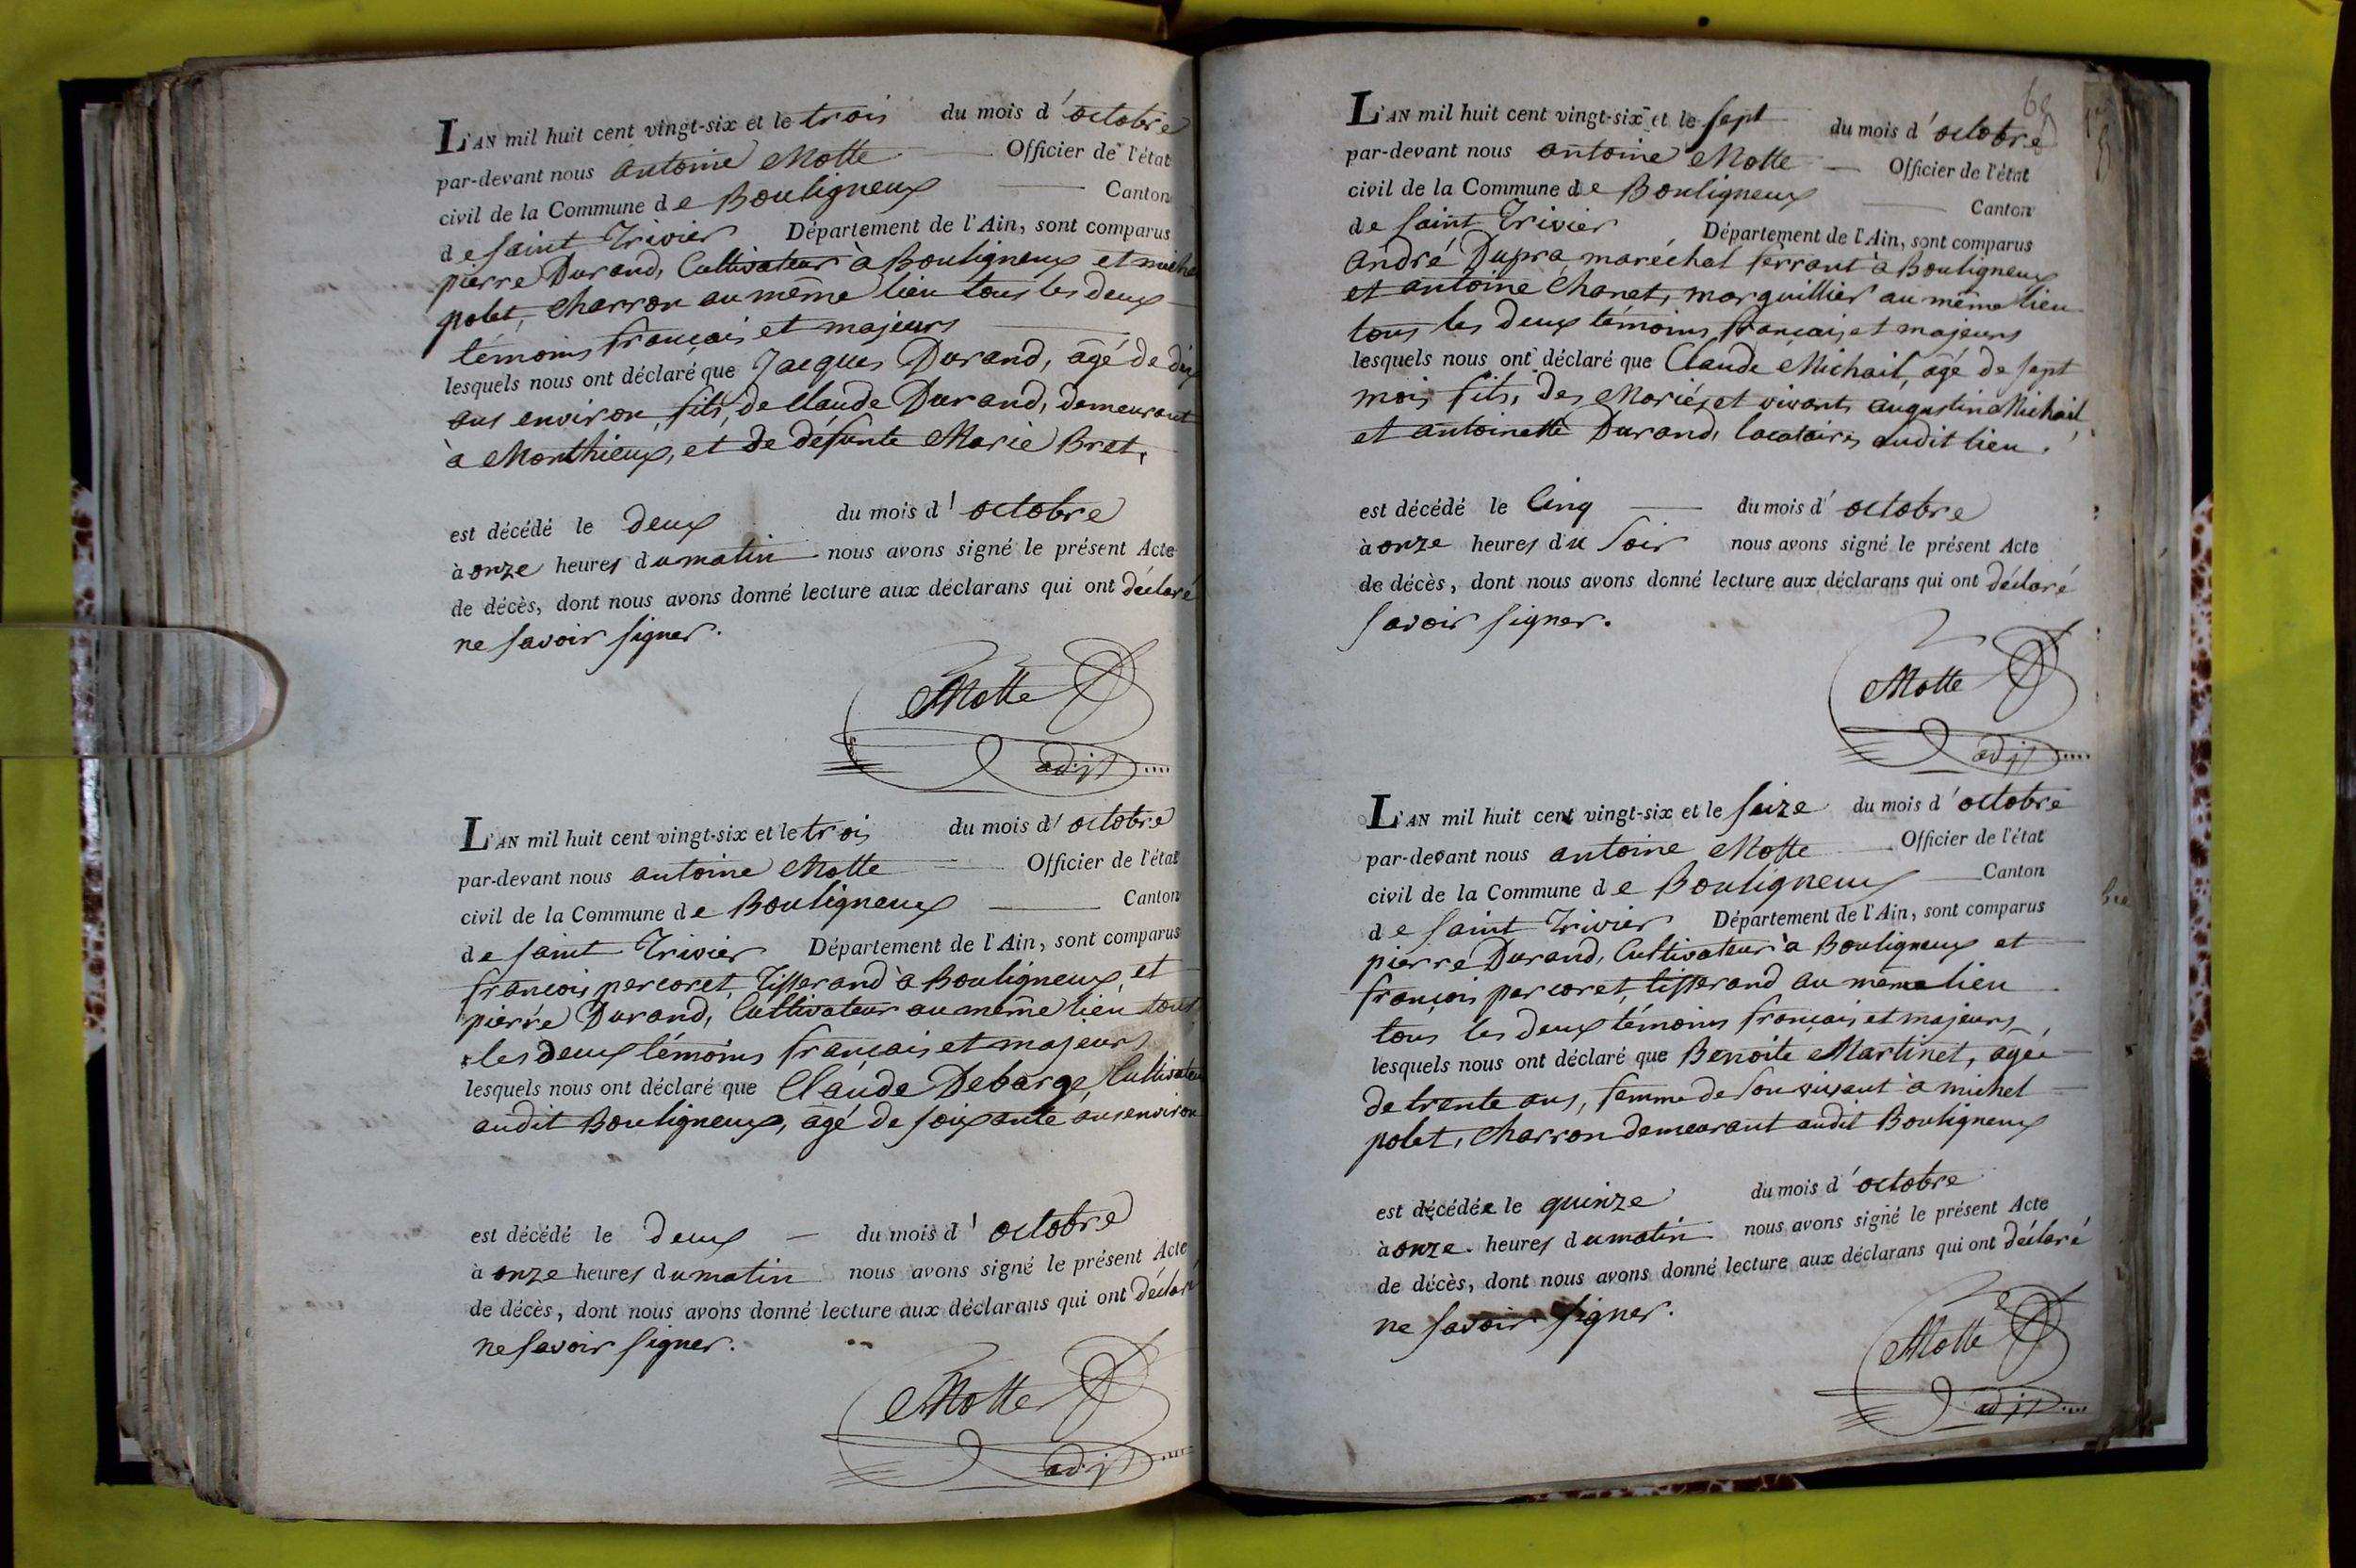 L'AN mil huit cent vingt-six et le trois du mois d'octobre
par-devant nous antoine Motte Officier de l'état
civil de la Commune de Bouligneux Canton
de saint Trivier Département de l'Ain, sont comparus
pierre Durand, Cultivateur à Bouligneux et miche
polet, charron au même lieu tous les deux
témoins français et majeurs
lesquels nous ont déclaré que Jacques Durand, âgé de dix
ans environ, fils, de Claude Durand, demeurant
à Monthieux, et de défunte Marie Bret,
est décédé le deux du mois d'octobre
à onze heures du matin nous avons signé le présent Acte
de décès, dont nous avons donné lecture aux déclarans qui ont déclaré
ne savoir signer.
Motte
adjt
L'AN mil huit cent vingt-six et le trois du mois d'octobre
par-devant nous antoine Motte Officier de l'état
civil de la Commune de Bouligneux Canton
de saint Trivier Département de l'Ain, sont comparus
françois percoret, Tisserand à Bouligneux, et
pierre Durand, Cultivateur au même lieu tous
les deux témoins français et majeurs
lesquels nous ont déclaré que Claude Debarge, Cultivateu
audit Bouligneux, âgé de soixante ans environ
est décédé le deux du mois d'octobre
à onze heures du matin nous avons signé le présent Acte
de décès, dont nous avons donné lecture aux déclarans qui ont déclaré
ne savoir signer.
Motte
adjt
L'AN mil huit cent vingt-six et le sept du mois d'octobre
par-devant nous antoine Motte Officier de l'état
civil de la Commune de Bouligneux Canton
de saint Trivier Département de l'Ain, sont comparus
andré Dupra, maréchal ferrant à Bouligneux
et antoine Chanet, marguillier au même lieu
tous les deux témoins français et majeurs
lesquels nous ont déclaré que Claude Michail, âgé de sept
mois, fils, des Mariés et vivants augustin Michail,
et antoinette Durand, locataires audit lieu.
est décédé le Cinq du mois d'octobre
à onze heures du soir nous avons signé le présent Acte
de décès, dont nous avons donné lecture aux déclarans qui ont déclaré
savoir signer.
Motte
adjt
L'AN mil huit cent vingt-six et le seize du mois d'octobre
par-devant nous antoine Motte Officier de l'état
civil de la Commune de Bouligneux Canton
de saint Trivier Département de l'Ain, sont comparus
pierre Durand, Cultivateur à Bouligneux et
françois percoret, tisserand au même lieu
tous les deux témoins français et majeurs,
lesquels nous ont déclaré que Benoite Martinet, agée
de trente ans, femme de son vivant à michel
polet, charron demeurant audit Bouligneux
est décédée le quinze du mois d'octobre
à onze heures du matin nous avons signé le présent Acte
de décès, dont nous avons donné lecture aux déclarans qui ont déclaré
ne savoir signer.
Motte
adjt